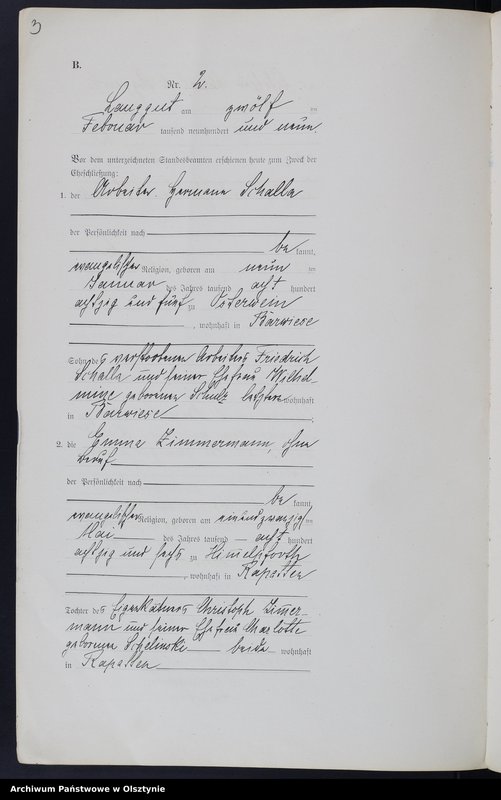 3
B.
Nr. 2.
Langgut am zwölf ten
Februar tausend neunhundert und neun.
Vor dem unterzeichneten Standesbeamten erschienen heute zum Zweck der
Eheschließung:
1. der Arbeiter Hermann Schalla
der Persönlichkeit nach
be kannt,
evangelischer Religion, geboren am neun ten
Januar des Jahres tausend acht hundert
achtzig und fünf zu Osterwein
, wohnhaft in Barwiese
Sohn des verstorbenen Arbeiters Friedrich
Schalla und seiner Ehefrau Wilhel-
mine geborenen Schulz letztere wohnhaft
in Barwiese
2. die Emma Zimmermann, ohne
Beruf
der Persönlichkeit nach
be kannt,
evangelischer Religion, geboren am einundzwanzig ten
Mai des Jahres tausend acht hundert
achtzig und sechs zu Himmelpforth
, wohnhaft in Rapatten
Tochter des Eigenkätners Christoph Zimer-
mann und seiner Ehefrau Charlotte
geborenen beide wohnhaft
in Rapatten
Archiwum Państwowe w Olsztynie